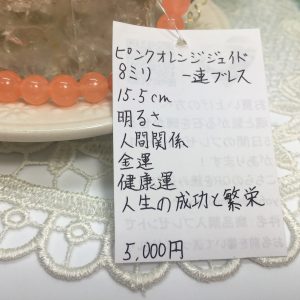 ピンクオレンジジェイド
8ミリ 一連ブレス
15.5cm
明るさ
人間関係
金運
健康運
人生の成功と繁栄
5,000円